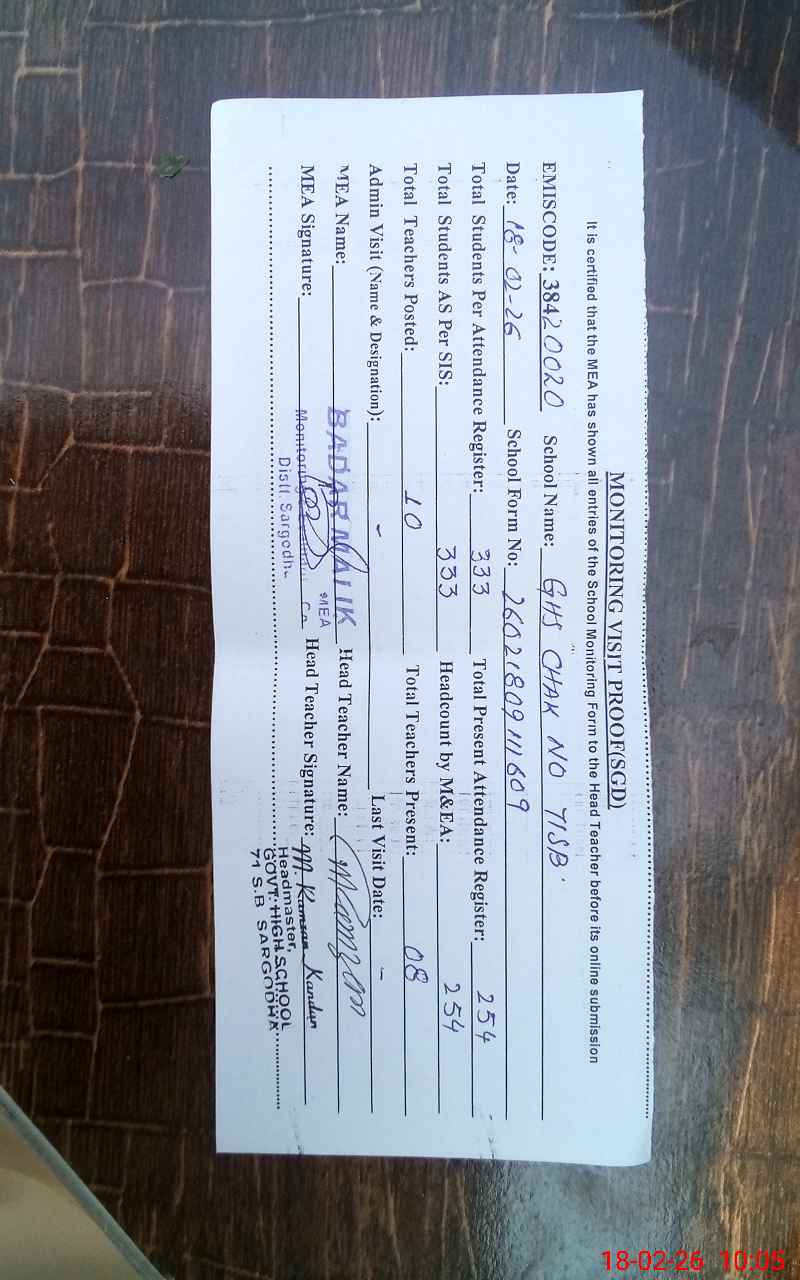 MONITORING VISIT PROOF(SGD)
It is certified that the MEA has shown all entries of the School Monitoring Form to the Head Teacher before its online submission
EMISCODE: 38420020 School Name: GHS CHAK NO 71SB
Date: 18-02-26 School Form No: 26021809111609
Total Students Per Attendance Register: 333 Total Present Attendance Register: 254
Total Students AS Per SIS: 333 Headcount by M&EA: 254
Total Teachers Posted: 10 Total Teachers Present: 08
Admin Visit (Name & Designation): - Last Visit Date: -
MEA Name: BADAR MALIK Head Teacher Name:
MEA
MEA Signature: Monitoring Head Teacher Signature: M.
Distt. Sargodh
Headmaster,
GOVT: HIGH SCHOOL
71 S.B SARGODHA
18-02-26 10:05